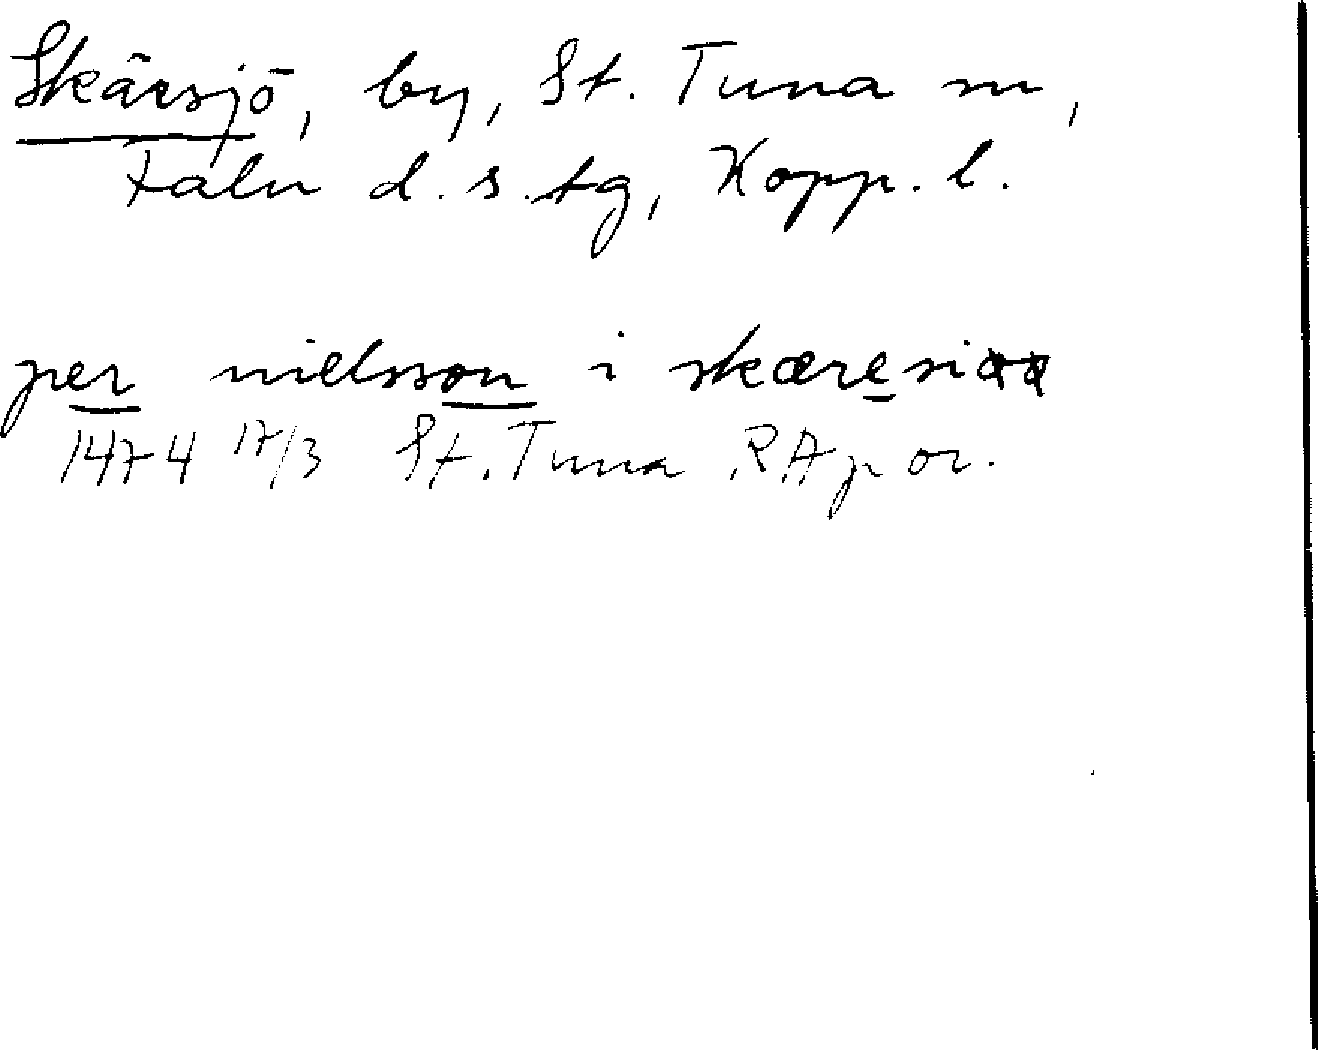 Skärsjö, by, St. Tuna sn,
Falu d.s.tg, Kopp.l.
per nielsson i skæresiøø
1474 17/3 St. Tuna RAp or.